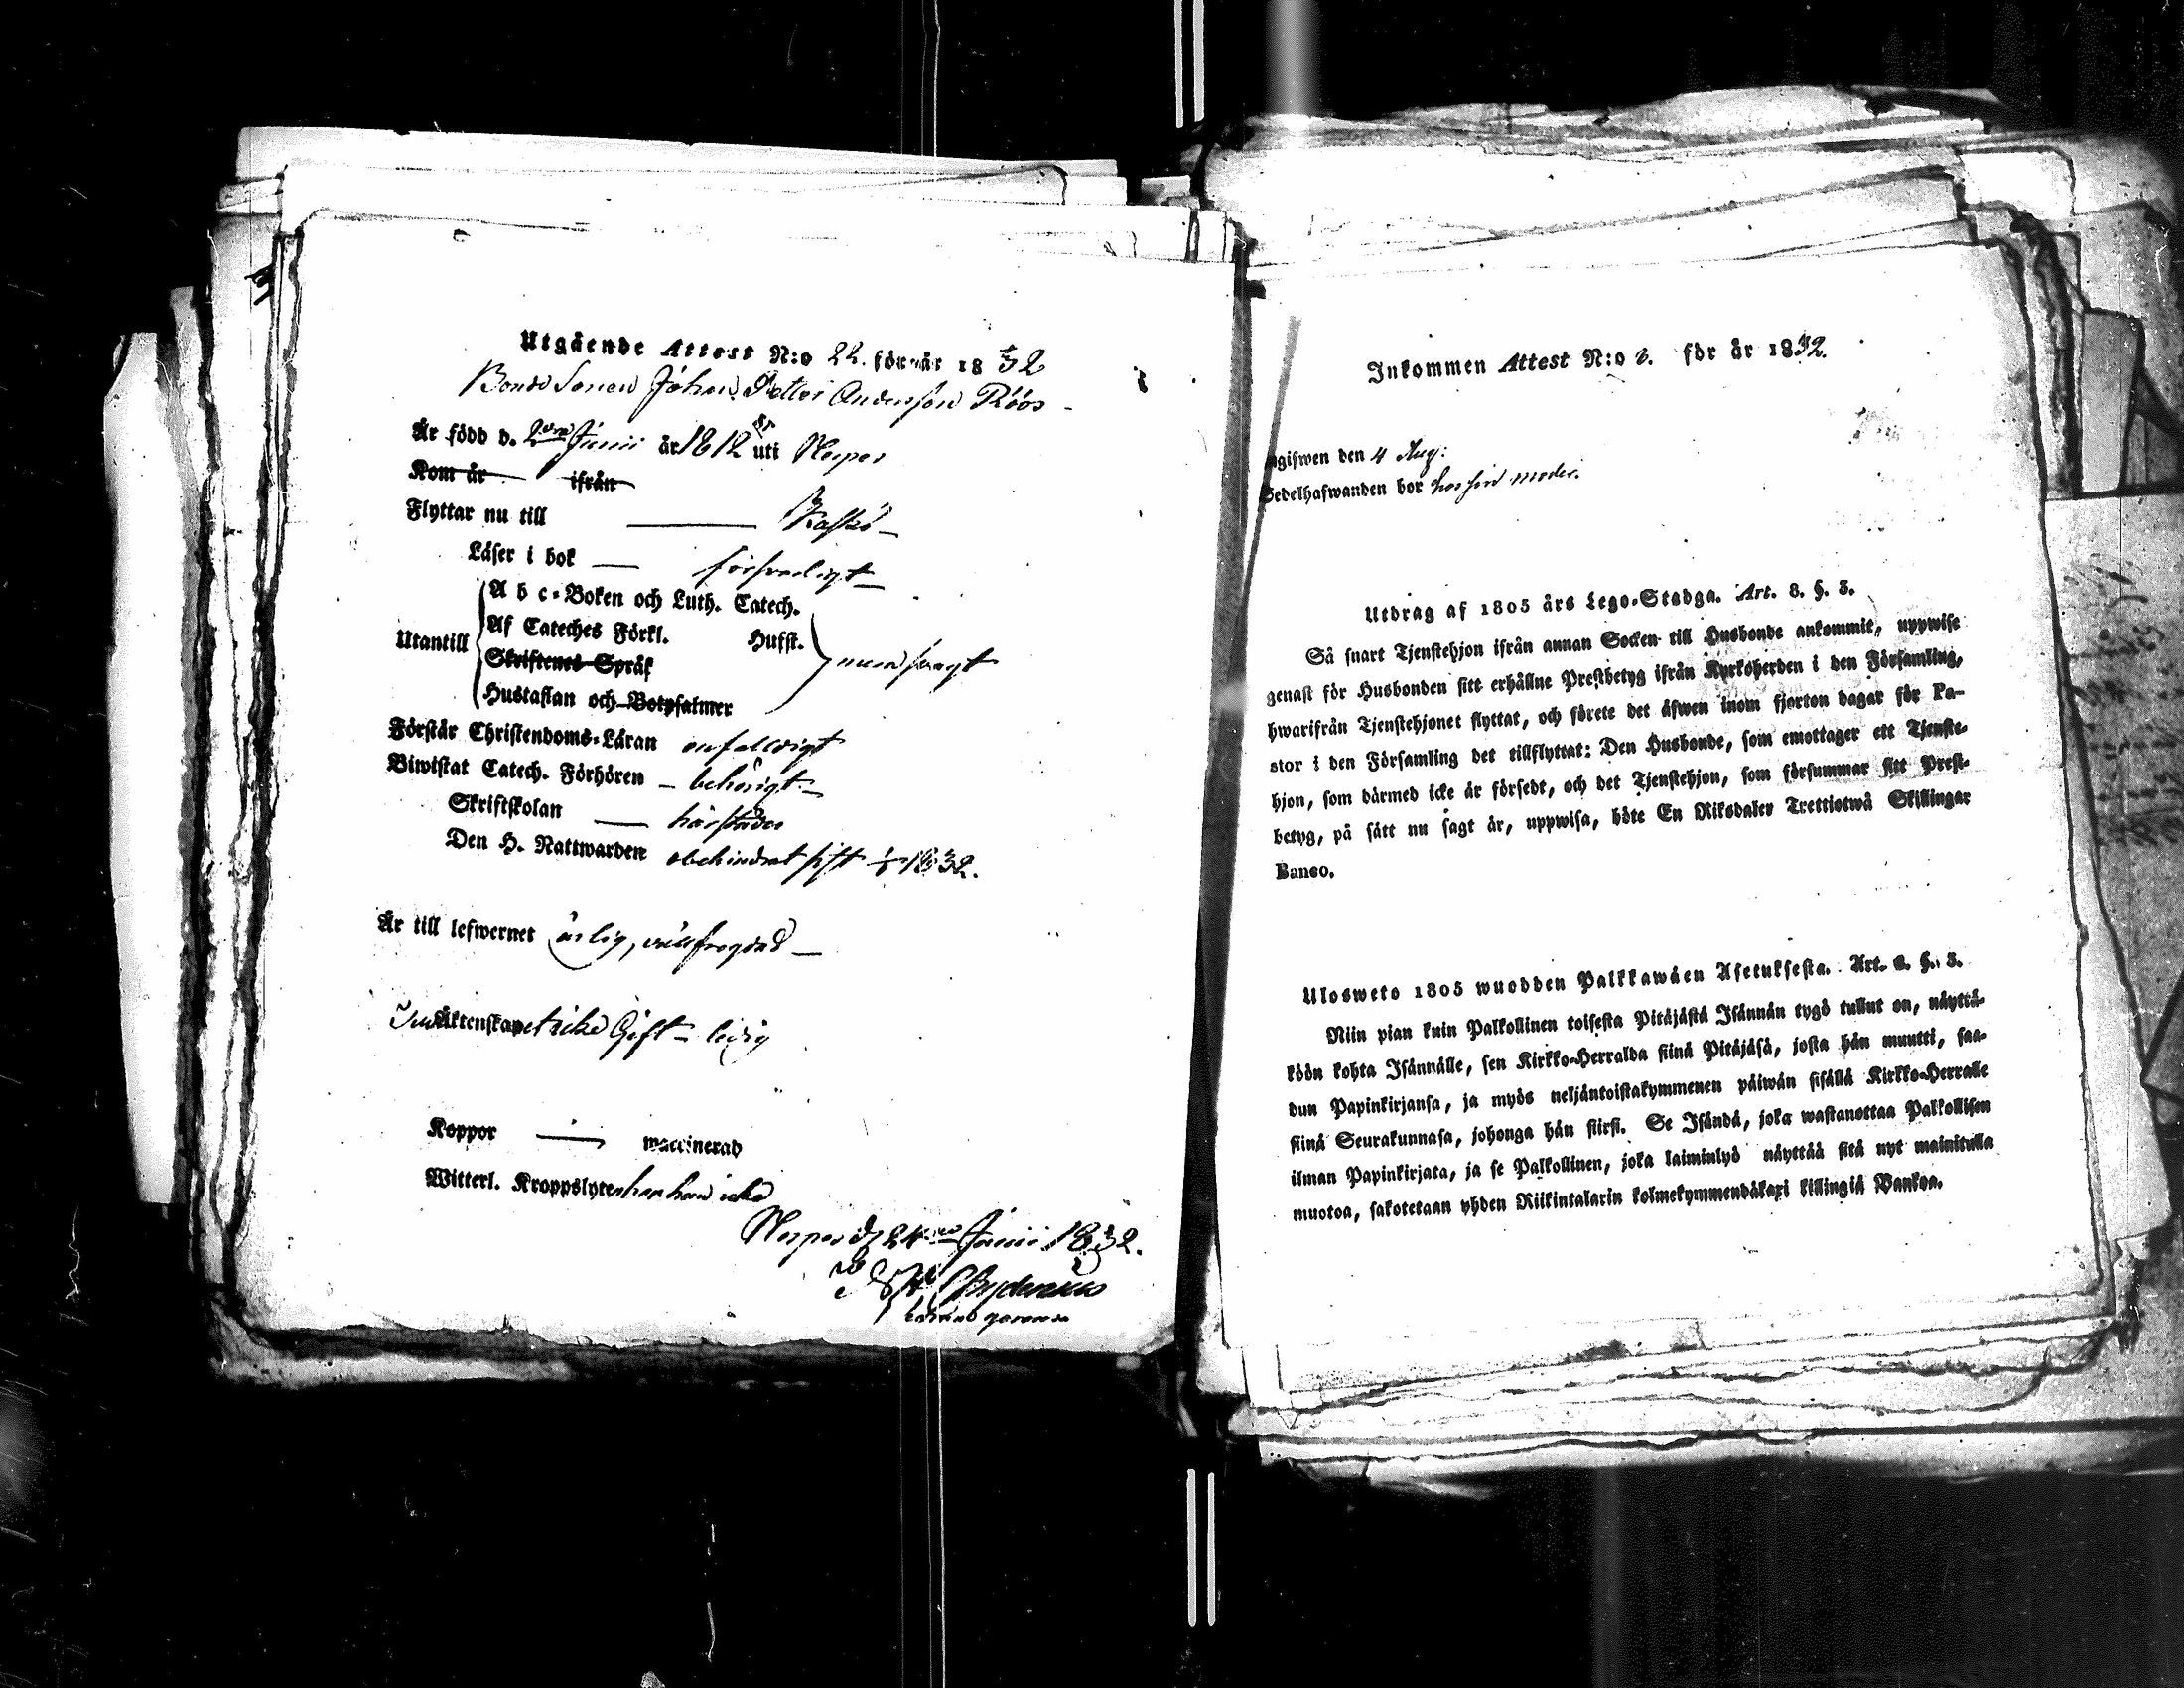 Utgående Attest N:o 22. för år 1832
Bonde Sonen Johan Petter Andersson Röös
Är född d. 2dra Junii år 1812 uti Nerpes
Kom år ifrån
Flyttar nu till Kaskö
Läser i bok försvarligt
A b c-Boken och Luth. Catech.
Af Cateches Förkl. Hufst.
Utantill
Skriftenes Språk
Hustaflan och Botpsalmer
Förstår Christendoms-Läran enfalldigt
Biwistat Catech. Förhören behörigt
Skriftskolan härstädes
Den H. Nattwarden obehindrat sist 1832.
Är till lefwernet ärlig, wälfrägdad
Äktenskap Gift ledig
Koppor waccinerad
Witterl. Kroppslyte har han icke
Nerpes d. 24 Junii 1832.
Inkommen Attest N:o 2. för år 1832.
ngifwen den 4 Aug:
Sedelhafwanden bor hos sin moder.
Utdrag af 1805 års Lego-Stadga. Art. 8. §. 3.
Så snart Tjenstehjon ifrån annan Socken till Husbonde ankommit, uppwise
genast för Husbonden sitt erhållne Prestbetyg ifrån Kyrkoherden i den Församling,
hwarifrån Tjenstehjonet flyttat, och förete det äfwen inom fjorton dagar för Pa-
stor i den Församling det tillflyttat: Den Husbonde, som emottager ett Tjenste-
hjon, som därmed icke är försedt, och det Tjenstehjon, som försummar sitt Prest-
betyg, på sätt nu sagt är, uppwisa, böte En Riksdaler Trettiotwå Skillingar
Banco.
Uloswето 1805 wuodden Palkkawäen Asetuksesta. Art. 8. §. 3.
Niin pian kuin Palkollinen toisesta Pitäjästä Isännän tygö tullut on, näyttä-
köön kohta Isännälle, sen Kirkko-Herralda siinä Pitäjäsä, josta hän muutti, saa-
dun Papinkirjansa, ja myös neljäntoistakymmenen päiwän sisällä Kirkko-Herralle
siinä Seurakunnasa, johonga hän siirsi. Se Isändä, joka wastanottaa Palkollisen
ilman Papinkirjata, ja se Palkollinen, joka laiminlyö näyttää sitä nyt mainitulla
muotoa, sakotetaan yhden Riikintalarin kolmekymmendäkaxi killingiä Bankoa.